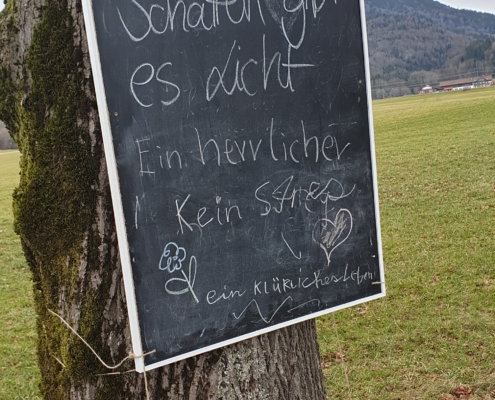 Schatten gibt
es Licht
Ein herrlicher
Kein Streß
ein KLÜRLiches Leben